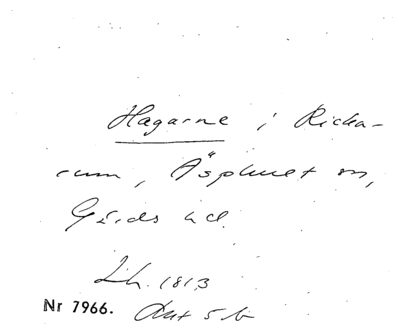 Hagarne i Ricka-
rum, Äsphult sn,
Gärds hd.
Lh. 1813
Nr 7966. Akt 5 b